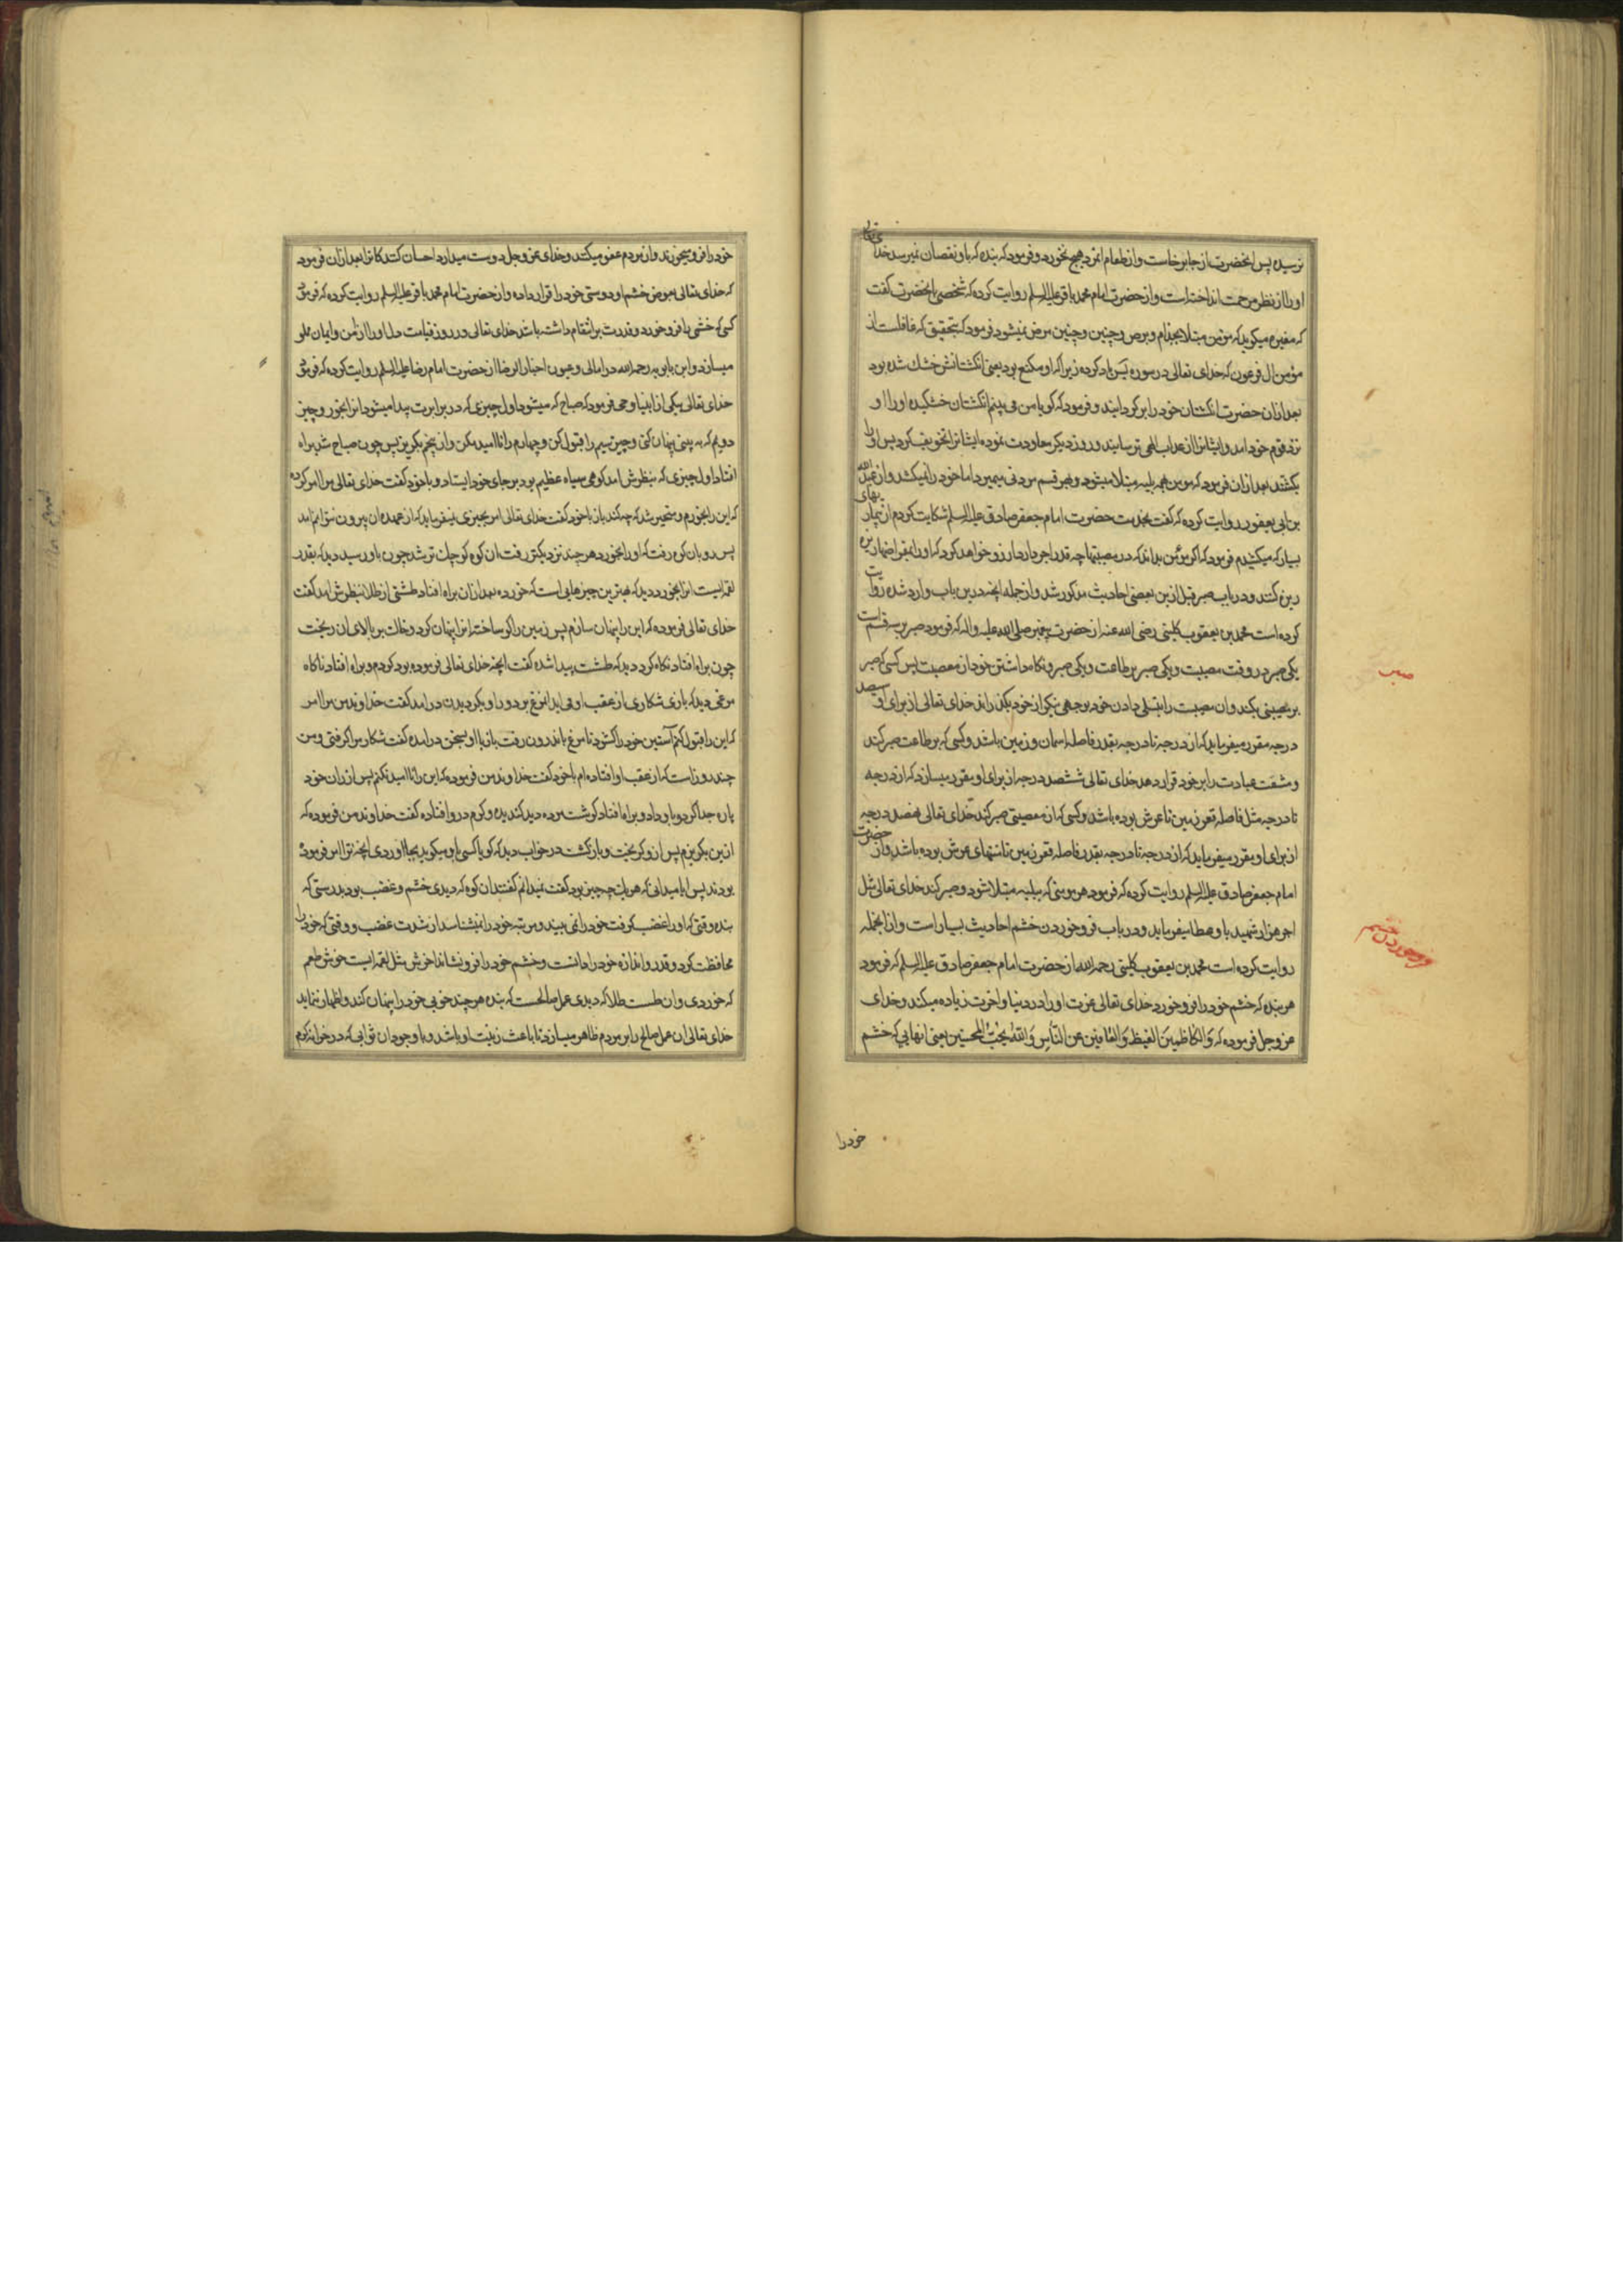 نرسیده پس انحضرت از جا برخاست و از طعام انمرد هیچ نخورد و فرمود که بنده که باو نقصان نمیرسد خدای تعالی
او را از نظر رحمت انداخته است و از حضرت امام محمد باقر علیه السلم روایت کرده که شخصی بانحضرت گفت
که مغیره میگوید که مؤمن مبتلا بجذام و برص و چنین و چنین مرض نمیشود فرمود که بتحقیق که غافلست از
مؤمن ال فرعون که خدای تعالی در سوره یس یاد کرده زیرا که او مکنع بود یعنی انگشتانش خشک شده بود
بعد ازان حضرت انگشتان خود را بر گردانید و فرمود که گویا من می بینم انگشتان خشکیده او را او
نزد قوم خود امد و ایشانرا از عذاب الهی ترسانید و روز دیگر معاودت نموده ایشانرا تخویف کرد پس او را
بکشتند بعد ازان فرمود که مومن بهمه بلیه مبتلا میشود و بهر قسم مردنی میمیرد اما خود را نمیکشد و از عبد الله
بن ابی یعفور روایت کرده که گفت بخدمت حضرت امام جعفر صادق علیه السلم شکایت کردم از بیماریهای
بسیار که میکشیدم فرمود که اگر مؤمن بداند که در مصیبتها چه قدر اجر دارد ارزو خواهد کرد که او را بمقراضها ریزه
ریزه کنند و در باب صبر قبل ازین بعضی احادیث مذکور شد و از جمله انچه درین باب وارد شده روایت
کرده است محمد بن یعقوب کلینی رضی الله عنه از حضرت پیغمبر صلی الله علیه و اله که فرمود صبر بر سه قسم است
یکی صبر در وقت مصیبت و یکی صبر بر طاعت و یکی صبر و نگاه داشتن خود از معصیت پس کسی که صبر
بر مصیبتی بکند و ان مصیبت را بتسلی دادن خود بوجهی نیکی از خود بگذراند خدای تعالی از برای او سیصد
درجه مقرر میفرماید که از درجه تا درجه بقدر فاصله اسمان و زمین باشد و کسی که بر طاعت صبر کند
و مشقت عبادت را بر خود قرار دهد خدای تعالی ششصد درجه از برای او مقرر میسازد که از درجه
تا درجه مثل فاصله قعر زمین تا عرش بوده باشد و کسی که از معصیتی صبر کند خدای تعالی نهصد درجه
از برای او مقرر میفرماید که از درجه تا درجه بقدر فاصله قعر زمین تا منتهای عرش بوده باشد و از حضرت
امام جعفر صادق علیه السلم روایت کرده که فرمود هر مومنی که ببلیه مبتلا شود و صبر کند خدای تعالی مثل
اجر هزار شهید باو عطا میفرماید و در باب فرو خوردن خشم احادیث بسیار است و از انجمله
روایت کرده است محمد بن یعقوب کلینی رحمه الله از حضرت امام جعفر صادق علیه السلم که فرمود
هر بنده که خشم خود را فرو خورد خدای تعالی عزت او را در دنیا و اخرت زیاده میکند و خدای
عز و جل فرموده که وَالْکَاظِمِینَ الْغَیْظَ وَالْعَافِینَ عَنِ النَّاسِ وَاللهُ یُحِبُّ الْمُحْسِنِینَ یعنی انهایی که خشم
خود را
صبر
فرو خوردن خشم
خود را فرو میخورند و از مردم عفو میکنند و خدای عز و جل دوست میدارد احسان کنندکانرا بعد ازان فرمود
که خدای تعالی بعوض خشم او دوستی خود را قرار داده و از حضرت امام محمد باقر علیه السلم روایت کرده که فرمود
کسی که خشمی را فرو خورد و قدرت بر انتقام داشته باشد خدای تعالی در روز قیامت دل او را از امن و ایمان مملو
میسازد و ابن بابویه رحمه الله در امالی و عیون اخبار الرضا از حضرت امام رضا علیه السلم روایت کرده که فرمود
خدای تعالی بیکی از انبیا وحی فرمود که صباح که میشود اول چیزی که در برابرت پیدا میشود انرا بخور و چیز
دویم که به بینی پنهان کن و چیز سیم را قبول کن و چهارم را ناامید مکن و از پنجم بگریز پس چون صباح شد براه
افتاد اول چیزی که بنظرش امد کوهی سیاه عظیم بود بر جای خود ایستاد و با خود گفت خدای تعالی مرا امر کرده
که این را بخورم و متحیر شد که چه کند باز با خود گفت خدای تعالی امر بچیزی نمیفرماید که از عهده ان بیرون نتوانم امد
پس رو بان کوه رفت که او را بخورد هر چند نزدیکتر رفت ان کوه کوچک تر شد چون باو رسید دید که بقدر
لقمه ایست انرا بخورد دید که بهترین چیزهایی است که خورده بعد ازان براه افتاد طشتی از طلا بنظرش امد گفت
خدای تعالی فرموده که این را پنهان سازم پس زمین را گو ساخته انرا پنهان کرد و خاک بر بالای ان ریخت
چون براه افتاد نگاه کرد دید که طشت پیدا شده گفت انچه خدای تعالی فرموده بود کردم و براه افتاد ناگاه
مرغی دید که بازی شکاری از عقب او می اید انمرغ بر دور او بگردیدن در امد گفت خداوند من مرا امر
که این را قبول کنم آستین خود را گشود تا مرغ باندرون رفت باز با او بسخن در امده گفت شکار مرا گرفتی و من
چند روز است که از عقب او افتاده ام با خود گفت خداوند من فرموده که این را ناامید نکنم پس از ران خود
پاره جدا کرد و باو داد و براه افتاد گوشت مرده دید گندیده و کرم در او افتاده گفت خداوند من فرموده که
ازین بگریزم پس ازو گریخت و بازگشت در خواب دید که گویا کسی باو میگوید بجا اوردی انچه ترا امر فرموده
بودند پس ایا میدانی که هر یک چه چیز بود گفت نمیدانم گفتند ان کوه که دیدی خشم و غضب بود بدرستی که
بنده وقتی که او را غضب گرفت خود را نمی بیند و مرتبه خود را نمیشناسد از شدت غضب و وقتی که خود را
محافظت کرد و قدر و اندازه خود را دانست و خشم خود را فرو نشاند اخرش مثل لقمه ایست خوش طعم
که خوردی و ان طست طلا که دیدی عمل صالحست که بنده هر چند خوبی خود را پنهان کند و اظهار ننماید
خدای تعالی ان عمل صالح را بر مردم ظاهر میسازد تا باعث زینت او باشد و با وجود ان ثوابی که در خزانه کرم